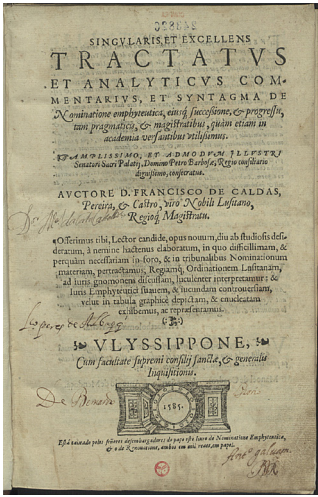 SINGVLARIS, ET EXCELLENS
TRACTATVS
ET ANALYTICVS COM-
MENTARIVS, ET SYNTAGMA DE
Nominatione emphyteutica, eiusq́ successione, & progressu,
tam pragmaticis, & magistratibus, quàm etiam in
academia versantibus vtilissimus.
ET AMPLISSIMO, ET ADMODVM ILLVSTRI
Senatori Sacri Palatij, Domino Petro Barbosæ, Regio consiliario
dignissimo, consecratus.
AVCTORE D. FRANCISCO DE CALDAS,
Pereira, & Castro, viro Nobili Lusitano,
Regioq́ Magistratu.
Offerimus tibi, Lector candide, opus nouum, diu ab studiosis desi-
deratum, à nemine hactenus elaboratum, in quo difficillimam, &
perquàm necessariam in foro, & in tribunalibus Nominationum
materiam, pertractamus, Regiamq́; Ordinationem Lusitanam,
ad iuris gnomonem discussam, luculenter interpretamur: &
Iuris Emphyteutici statum, & iucundam controuersiam,
velut in tabula graphicè depictam, & enucleatam
exhibemus, ac repræsentamus.
VLYSSIPPONE,
Cum facultate supremi consilij sanctæ, & generalis
Inquisitionis.
1585.
Está taixado pelos señores desembargadores do paço este liuro de Nominatione Emphyteutica,
& o de Renouatione, ambos em mil reaes, em papel.